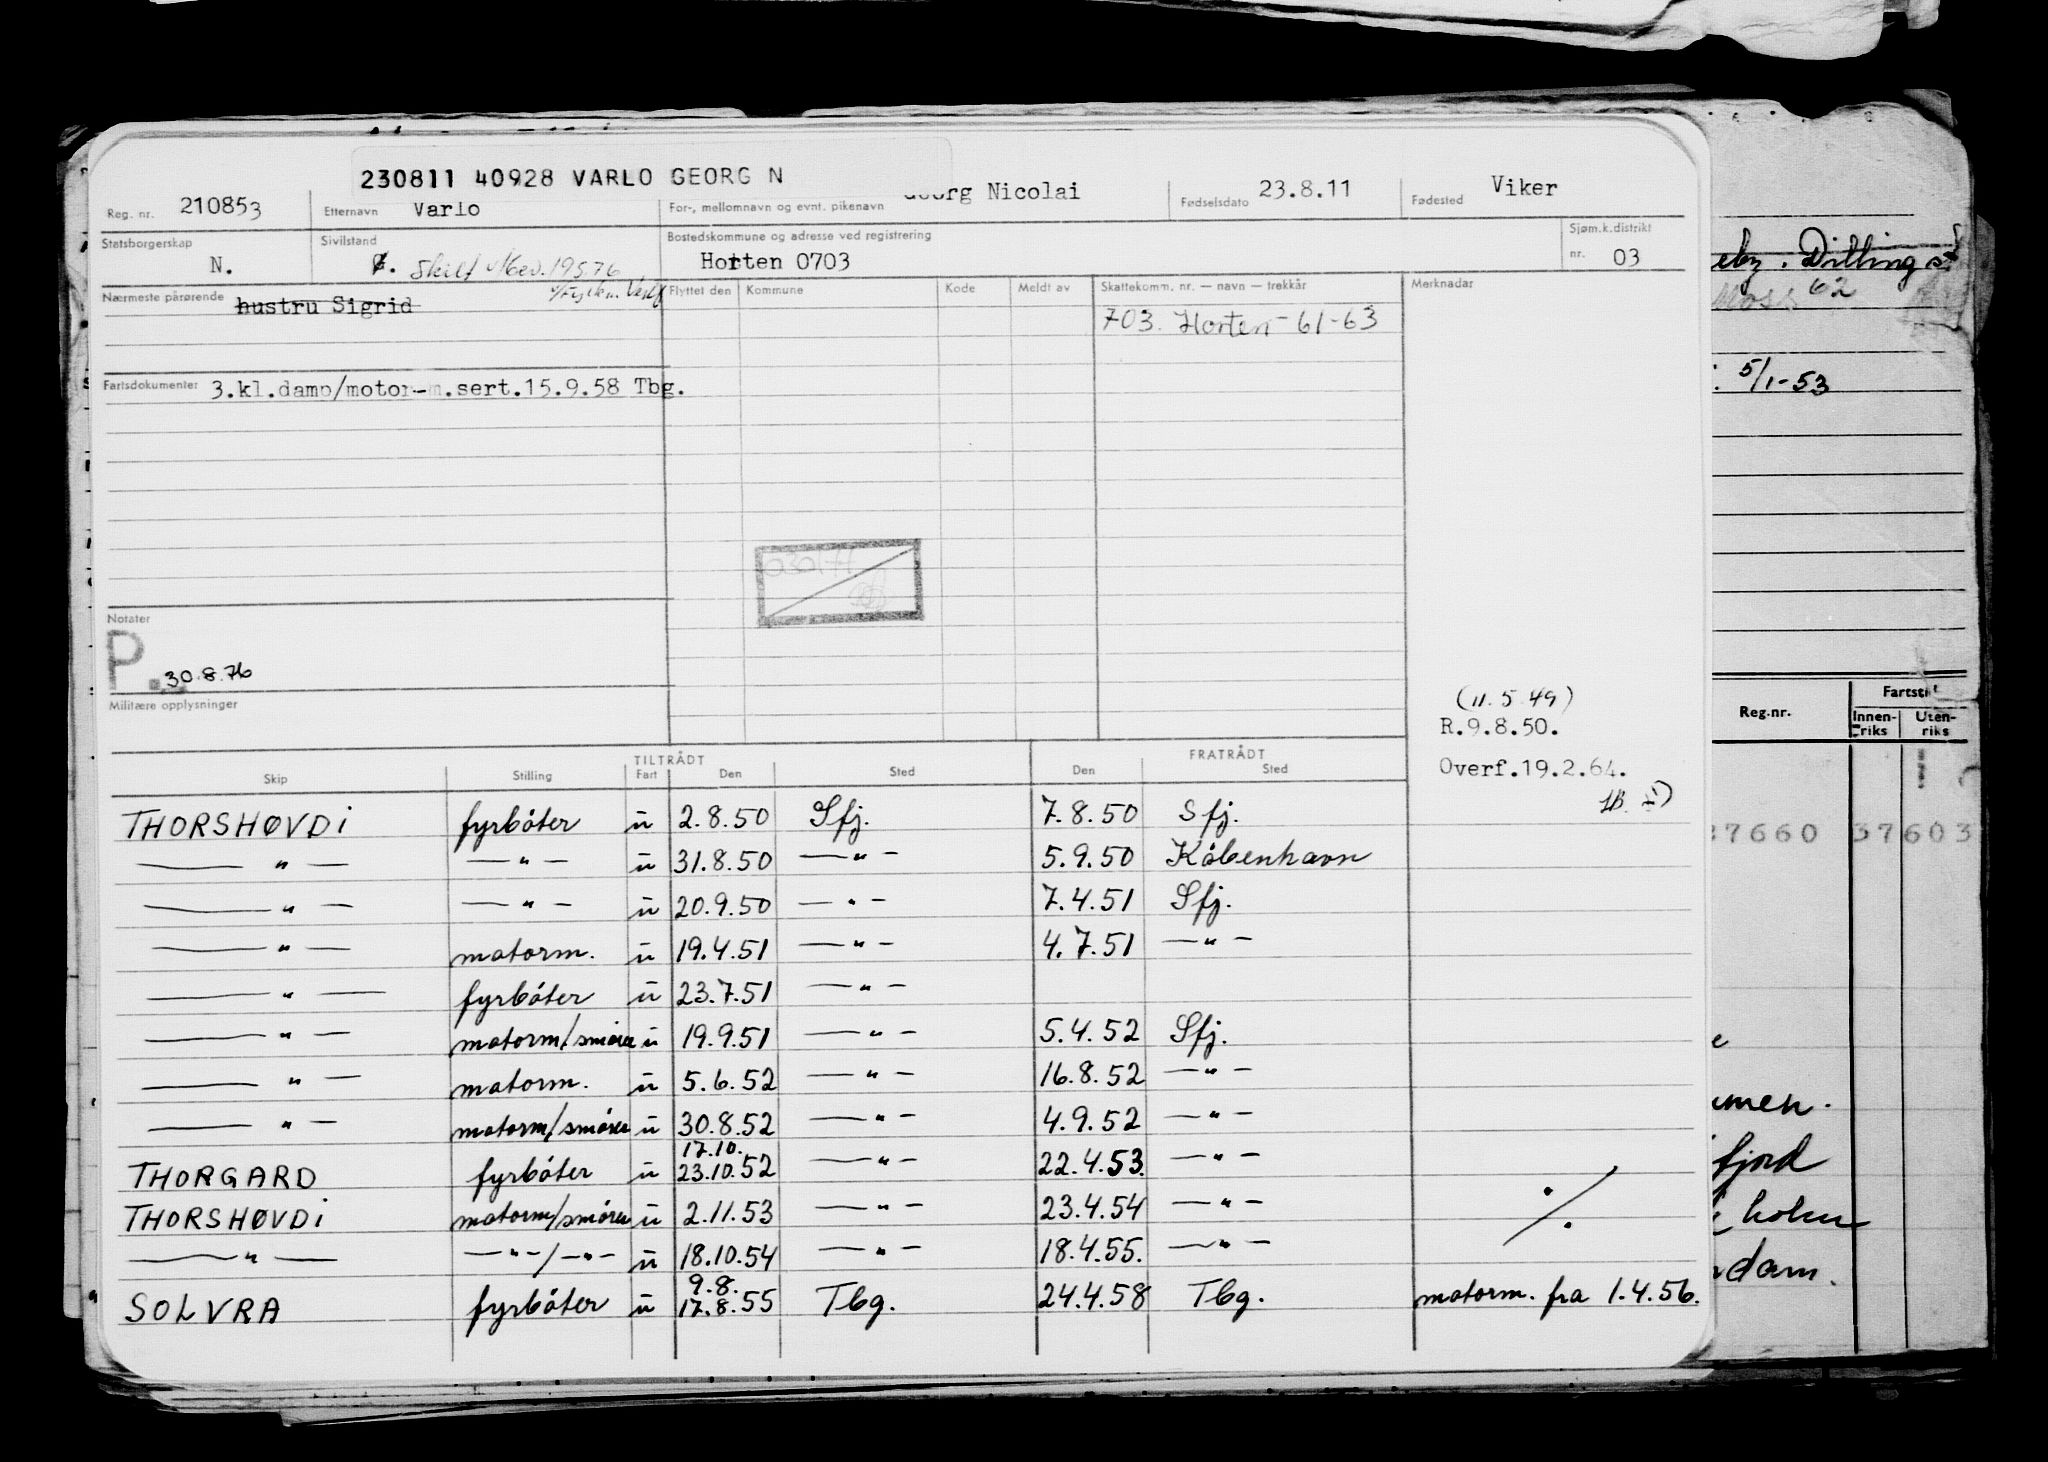 230811 40928 VARLO GEORG N
Reg. nr. 210853 Etternavn Varlo For-, mellomnavn og evnt. pikenavn Georg Nicolai Fødselsdato 23.8.11 Fødested Viker
Statsborgerskap N. Sivilstand Skilt Bostedskommune og adresse ved registrering Horten 0703 Sjøm.k.distrikt nr. 03
Nærmeste pårørende hustru Sigrid Flyttet den Kommune Kode Meldt av Skattekomm. nr. — navn — trekkår Merknader
703. Horten 61-63
Fartsdokumenter 3.kl.damp/motor-m.sert.15.9.58 Tbg.
Notater
P. 30.8.76
Militære opplysninger
(11.5.49)
R.9.8.50.
Overf.19.2.64.
TILTRÅDT FRATRÅDT
Skip Stilling Fart Den Sted Den Sted
THORSHØVDI fyrbøter u 2.8.50 Sfj. 7.8.50 Sfj.
— " — — " — u 31.8.50 — " — 5.9.50 København
— " — — " — u 20.9.50 — " — 7.4.51 Sfj.
— " — motorm. u 19.4.51 — " — 4.7.51 — " —
— " — fyrbøter u 23.7.51 — " —
— " — motorm/smører u 19.9.51 — " — 5.4.52 Sfj.
— " — motorm. u 5.6.52 — " — 16.8.52 — " —
— " — motorm/smører u 30.8.52 — " — 4.9.52 — " —
17.10.
THORGARD fyrbøter u 23.10.52 — " — 22.4.53. — " —
THORSHØVDI motorm/smører u 2.11.53 — " — 23.4.54 — " —
— " — — " — / — " — u 18.10.54 — " — 18.4.55. — " —
9.8.
SOLVRA fyrbøter u 17.8.55 Tbg. 24.4.58 Tbg. motorm. fra 1.4.56.
Dilling st
Moss 62
5/1-53
Reg.nr. Fartstid
Innen-riks Uten-riks
27660 37603
fjord
holm
dam.